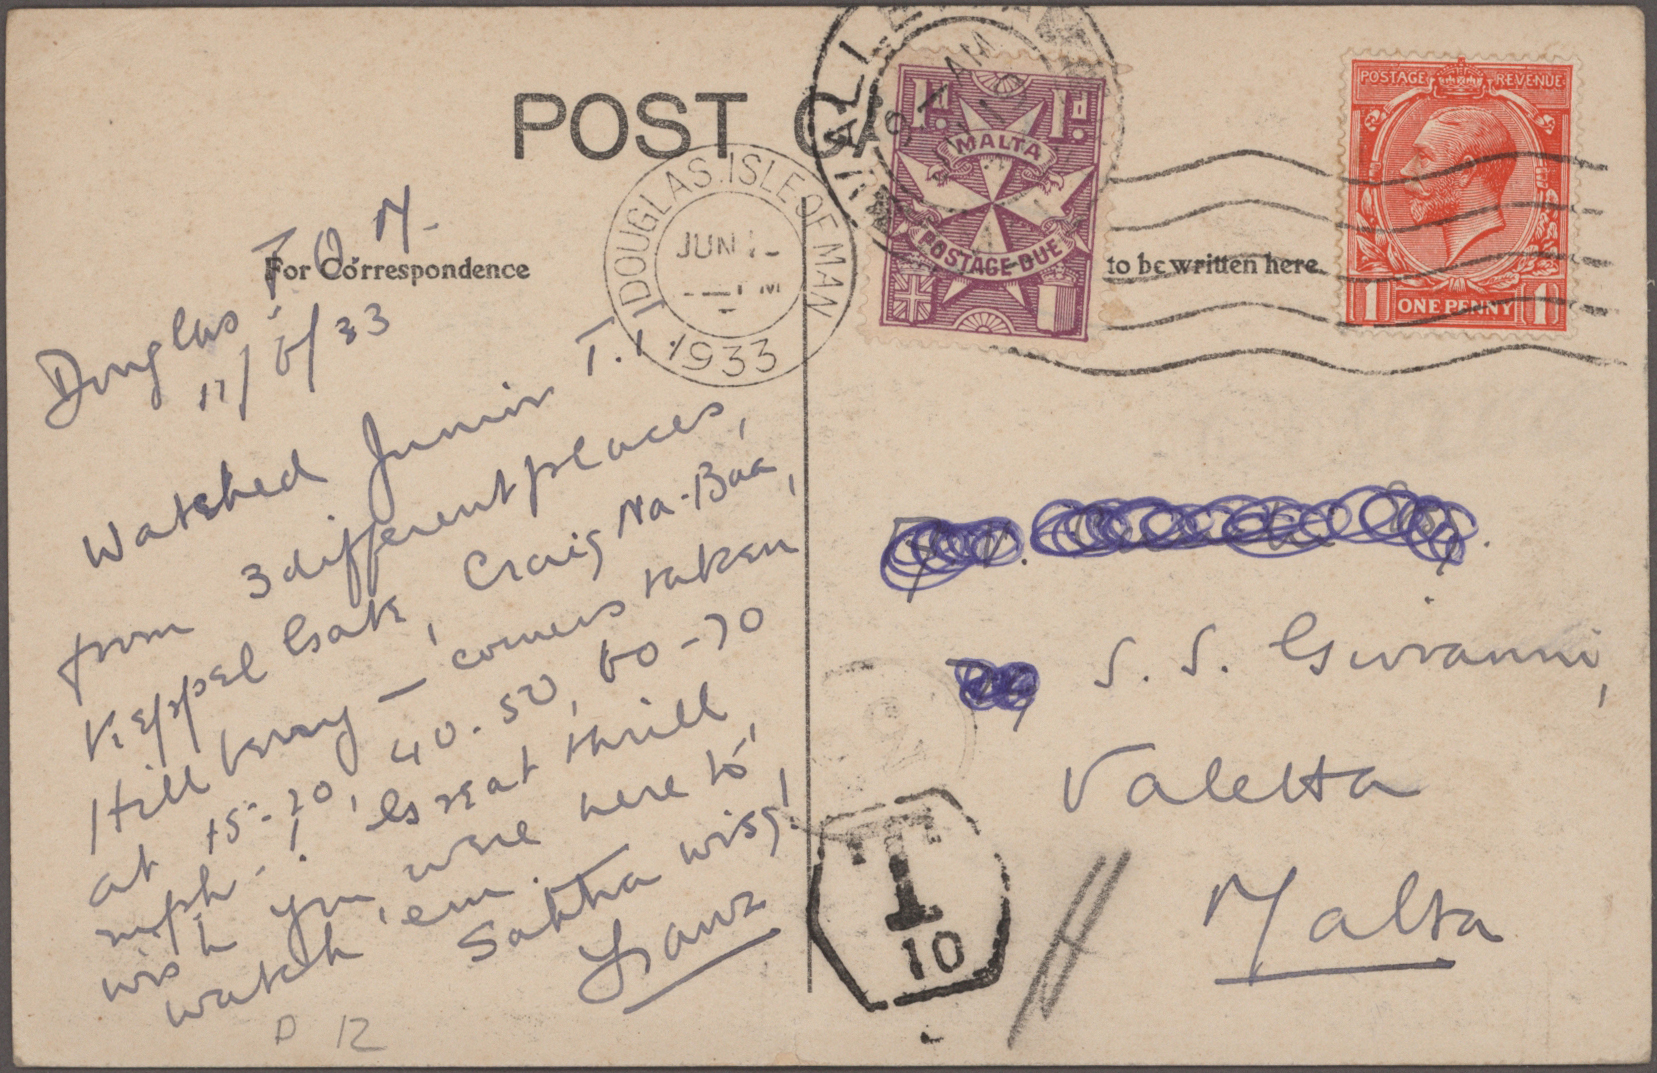 POST
For Correspondence
to be written here
VALLETTA
AM
19
MALTA
1d. 1d.
MALTA
POSTAGE DUE
POSTAGE REVENUE
1 ONE PENNY 1
DOUGLAS. ISLE OF MAN
JUN 1
PM
1933
I. O. M.
Douglas
11/6/33
Watched Junior T.T.
from 3 different places,
Keppel Gate, Craig Na-Baa,
Hill berry — corners taken
at 15-20, 40-50, 60-70
mph.! Great thrill
wish you were here to
watch 'em. Sahha wisq!
D 12
S. S. Giovanni,
Valetta
Malta
T
10